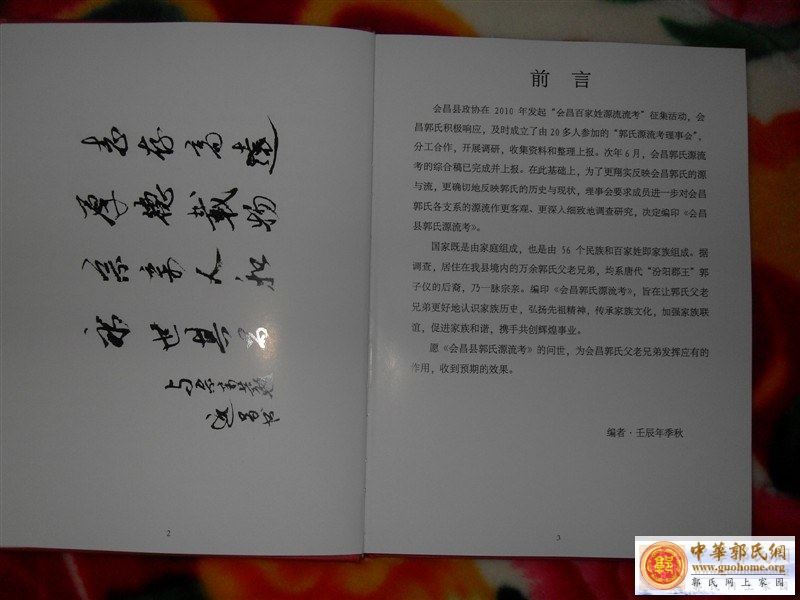 志存高遠
厚德載物
宗亲人和
永世其昌
2
前 言
会昌县政协在 2010 年发起“会昌百家姓源流流考”征集活动，会
昌郭氏积极响应，及时成立了由 20 多人参加的“郭氏源流考理事会”，
分工合作，开展调研，收集资料和整理上报。次年 6 月，会昌郭氏源流
考的综合稿已完成并上报。在此基础上，为了更翔实反映会昌郭氏的源
与流，更确切地反映郭氏的历史与现状，理事会要求成员进一步对会昌
郭氏各支系的源流作更客观、更深入细致地调查研究，决定编印《会昌
县郭氏源流考》。
国家既是由家庭组成，也是由 56 个民族和百家姓即家族组成。据
调查，居住在我县境内的万余郭氏父老兄弟，均系唐代“汾阳郡王”郭
子仪的后裔，乃一脉宗亲。编印《会昌郭氏源流考》，旨在让郭氏父老
兄弟更好地认识家族历史，弘扬先祖精神，传承家族文化，加强家族联
谊，促进家族和谐，携手共创辉煌事业。
愿《会昌县郭氏源流考》的问世，为会昌郭氏父老兄弟发挥应有的
作用，收到预期的效果。
编者·壬辰年季秋
3
中華郭氏網
www.guohome.org
郭氏网上家园